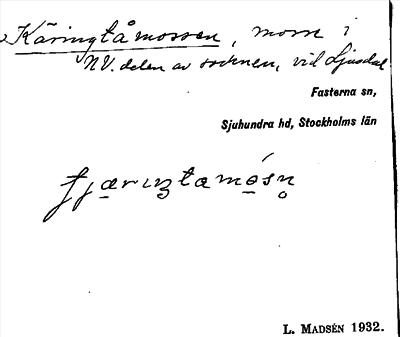 Käringtåmossen, mosse i
NV. delen av socknen, vid Ljusdal.
Fasterna sn,
Sjuhundra hd, Stockholms län
L. MADSÉN 1932.